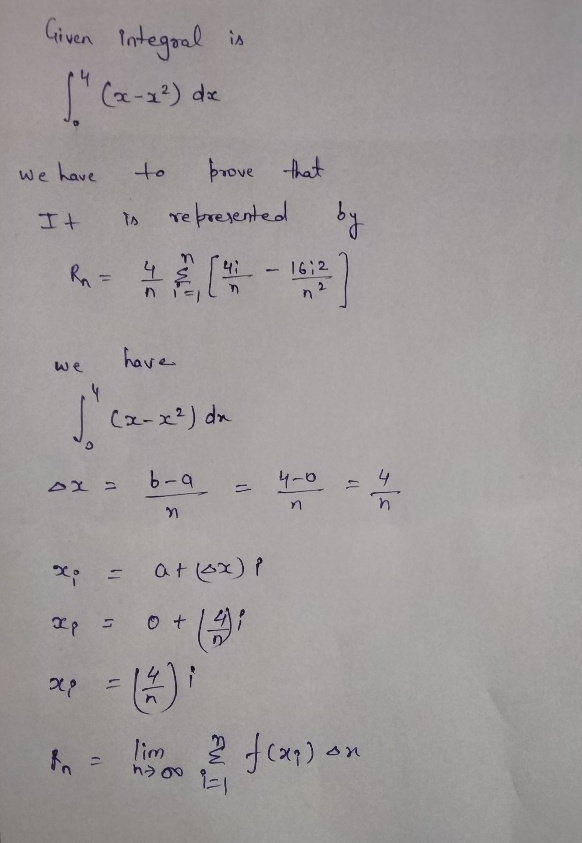 Given Integral is
∫₀⁴ (x-x²) dx
we have to prove that
It is represented by
Rn = 4/n Σᵢ₌₁ⁿ [4i/n - 16i2/n²]
we have
∫₀⁴ (x-x²) dx
Δx = b-a/n = 4-0/n = 4/n
xi = a+(Δx) i
xi = 0+(4/n)i
xi = (4/n) i
Rn = lim n→∞ Σᵢ₌₁ⁿ f(xi) Δx